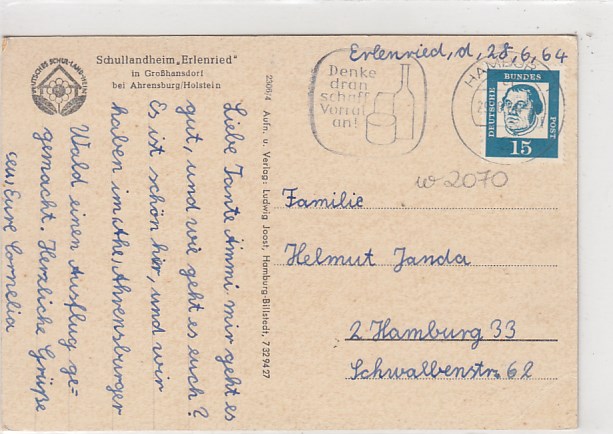 DEUTSCHES SCHUL-LAND-HEIM
Schullandheim „Erlenried"
in Großhansdorf
bei Ahrensburg/Holstein
Erlenried, d. 28.6.64
Denke
dran
schaff
Vorrat
an!
HAMBUR
DEUTSCHE BUNDES POST
15
w 2070
Liebe Tante Ammi mir geht es
gut, und wie geht es euch?
Es ist schön hier, und wir
haben im Ahrensburger
Wald einen Ausflug ge-
gemacht. Herzliche Grüße
Eure Cornelia
2306/4 Aufn. u. Verlag: Ludwig Joost, Hamburg-Billstedt, 7 329427
Familie
Helmut Janda
2 Hamburg 33
Schwalbenstr. 62